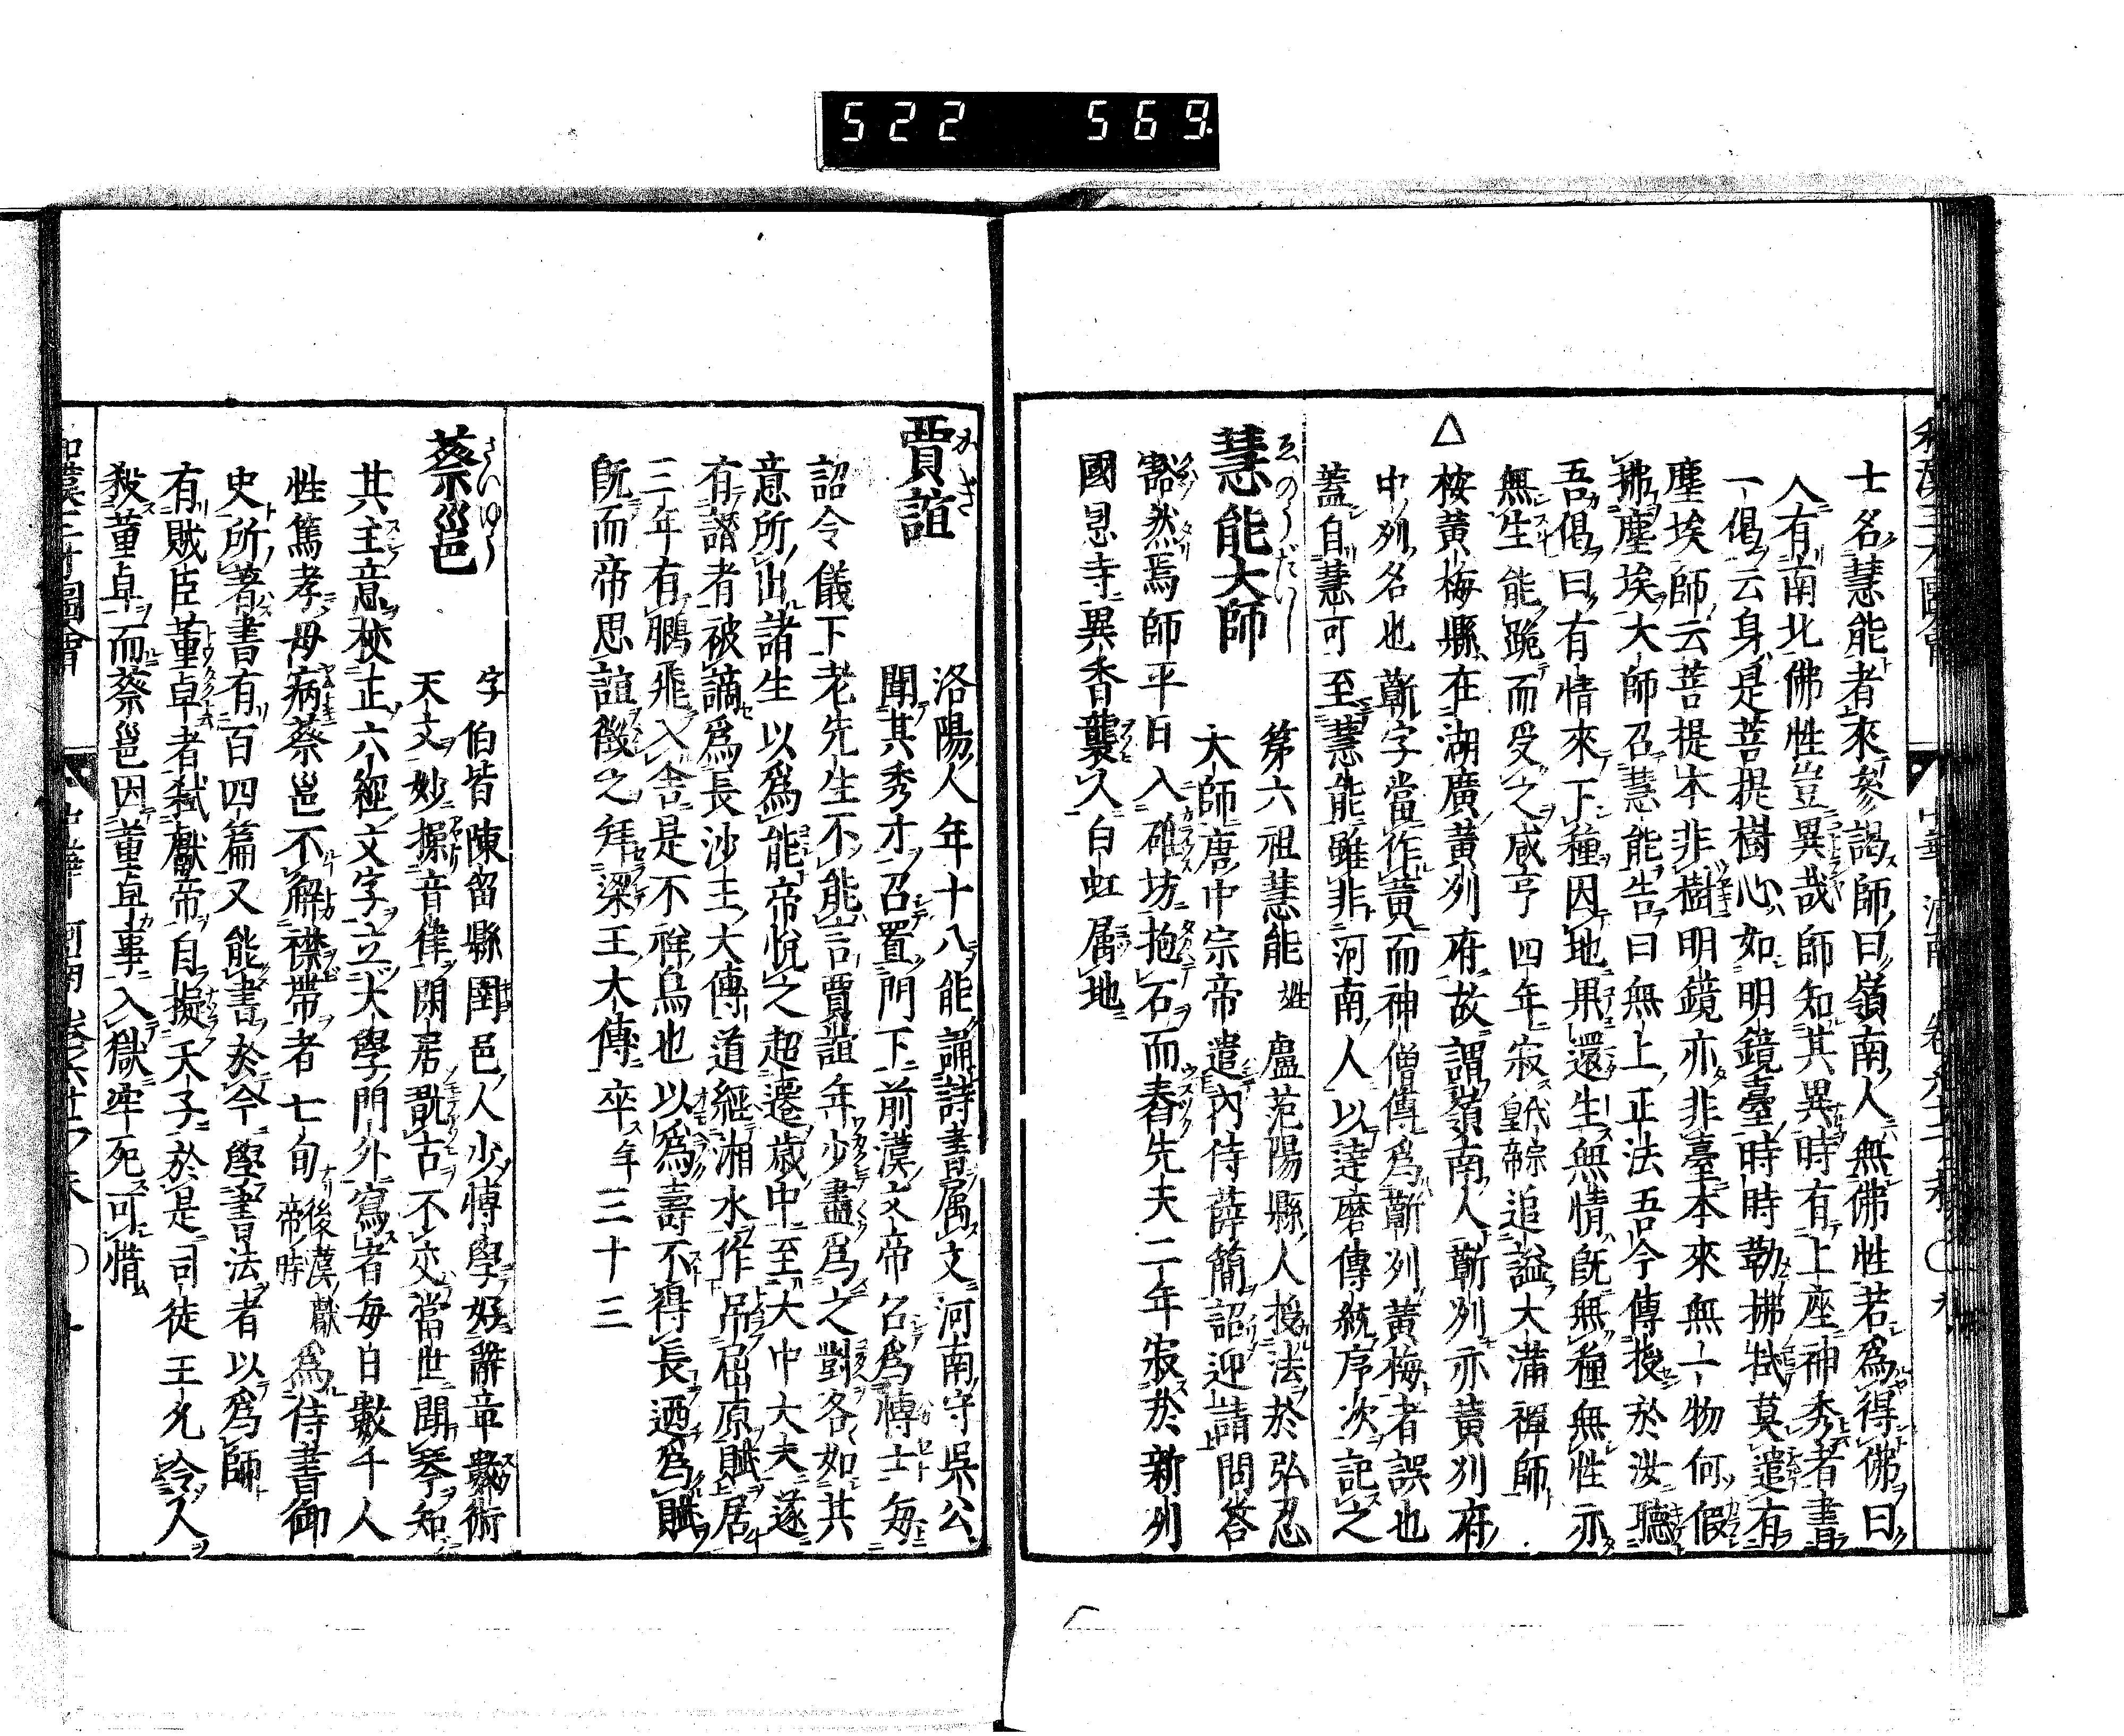 522 569.
士名慧能者來參謁師曰嶺南人無佛性若爲得佛曰
人有南北佛性豈異哉師知其異時有上座神秀者書
一偈云身是菩提樹心如明鏡臺時時勤拂拭莫遣有
塵埃師云菩提本非樹明鏡亦非臺本來無一物何假
拂塵埃大師召慧能告曰無上正法吾今傳授於汝聽
吾偈曰有情來下種因地果還生無情既無種無性亦
無生能跪而受之咸亨四年寂代宗皇帝追謚大滿禪師
△按黃梅縣在湖廣黃州府故謂嶺南人蘄州亦黃州府
中州名也蘄字當作黃而神僧傳爲蘄州黃梅者誤也
蓋自慧可至慧能雖非河南人以達磨傳統序次記之
慧能大師 ゑのうだいし
第六祖慧能姓盧范陽縣人授法於弘忍
大師唐中宗帝遣內侍薛簡詔迎請問答
豁然焉師平日入碓坊抱石而舂先天二年寂於新州
國恩寺異香襲人白虹属地
賈誼 かぎ
洛陽人年十八能誦詩書属文河南守吳公
聞其秀才召置門下前漢文帝召爲博士每
詔令儀下老先生不能言賈誼年少盡爲之對各如其
意所出諸生以爲能帝悅之超遷歲中至大中大夫遂
有譖者被謫爲長沙王大傅道經湘水作吊屈原賦居
三年有鵩飛入舍是不祥鳥也以爲壽不得長迺爲賦
既而帝思誼徵之拜梁王大傅卒年三十三
蔡邕 さいゆう
字伯皆陳留縣圉邑人少博學好辭章數術
天文妙操音律閑居翫古不交當世聞琴知
其主意校正六經文字立大學門外寫者每日數千人
性篤孝母病蔡邕不解襟帶者七旬後漢獻帝時爲侍書御
史所著書有百四篇又能書於今學書法者以爲師
有賊臣董卓者弑獻帝自擬天子於是司徒王允令人
殺董卓而蔡邕因董卓事入獄牢死可惜